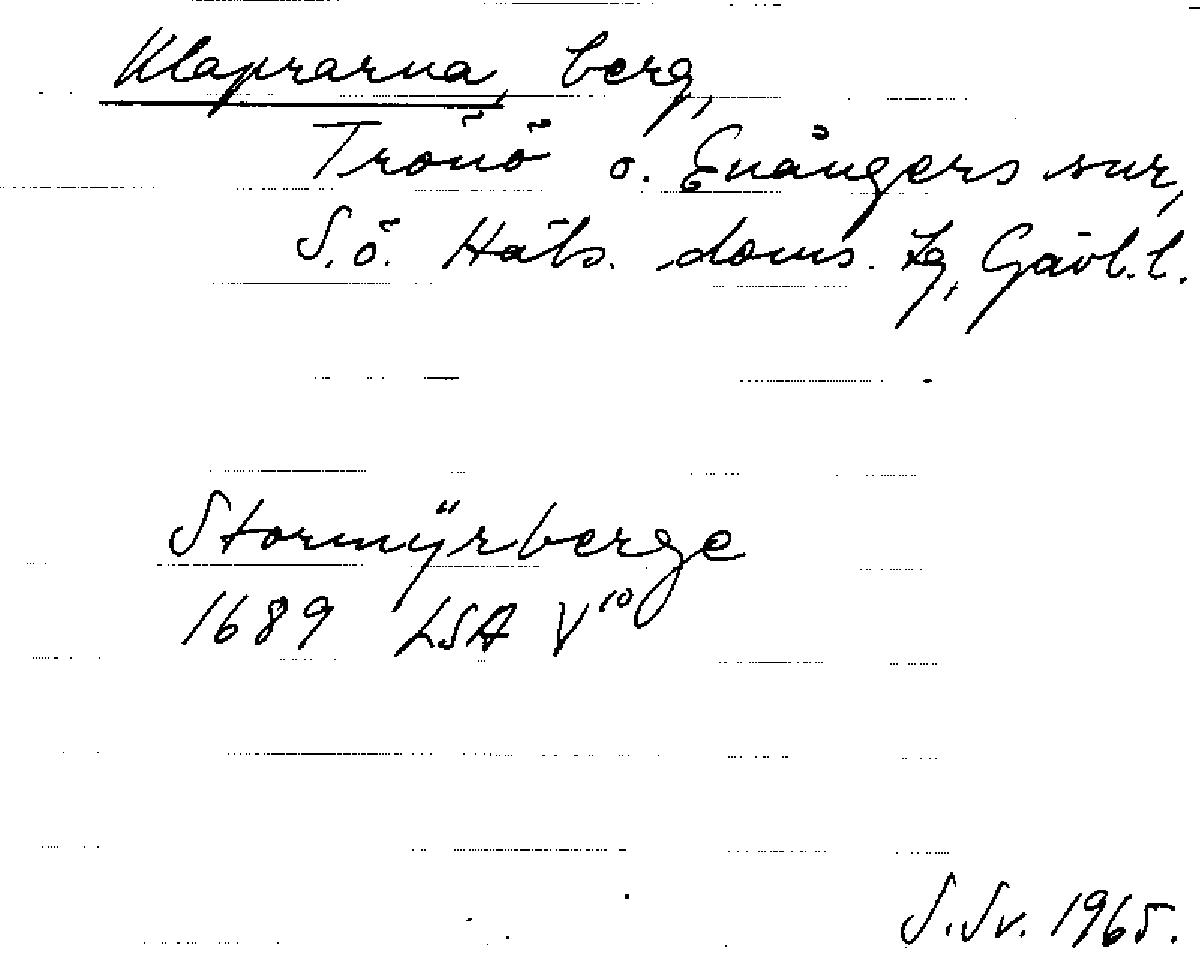 Klaprarna, berg,
Trönö o. Enångers snr,
S.ö. Häls. doms. tg, Gävl.l.
Stormÿrberge
1689 LSA V¹⁰
S.Sv. 1965.